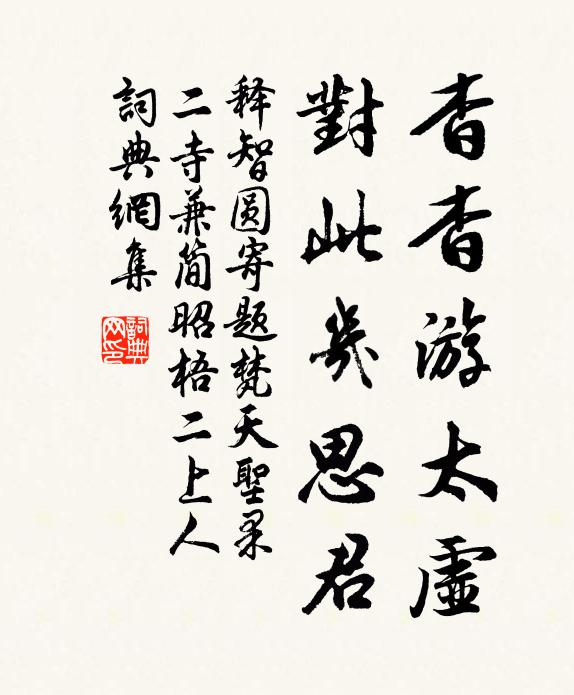 杳杳游太虛
對此幾思君
释智圆寄题梵天聖果
二寺兼简昭梧二上人
詞典網集
詞典网印